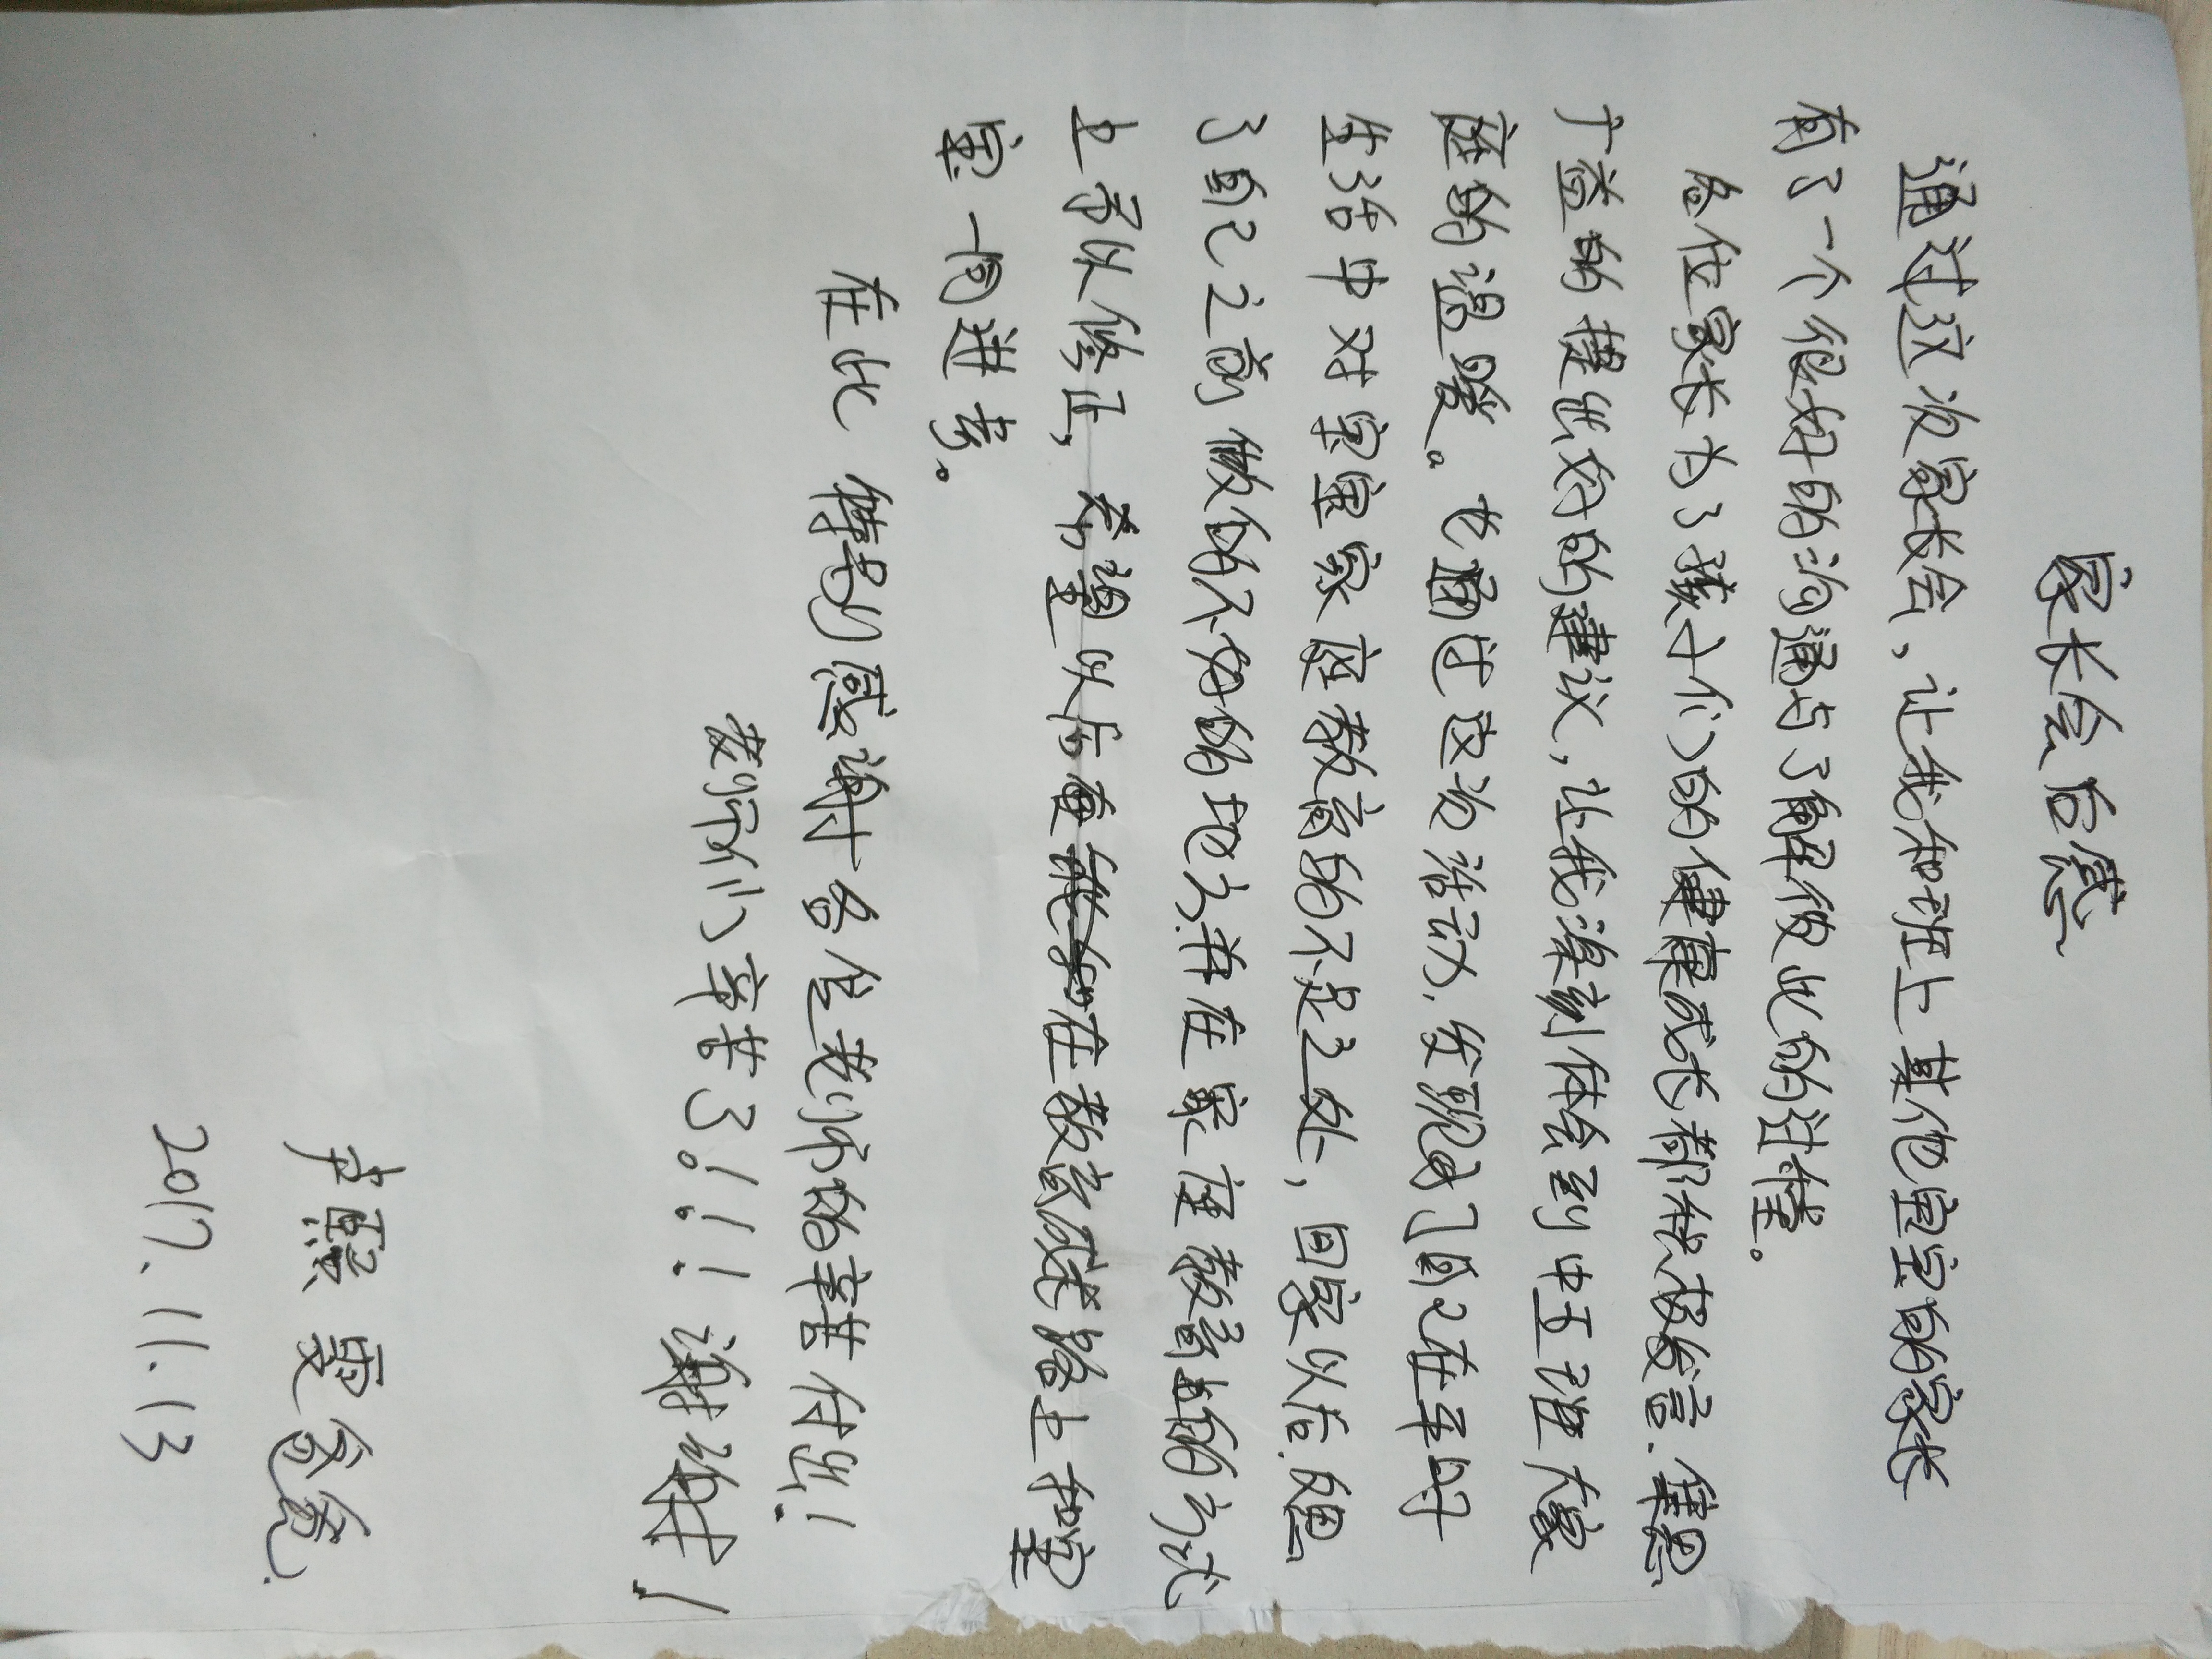 家长会后感
通过这次家长会，让我和班上其他宝宝的家长
有了一个很好的沟通与了解彼此的过程。
各位家长为了孩子们的健康成长都积极发言.集思
广益的提出好的建议，让我深刻体会到中五班大家
庭的温暖。也通过这次活动,发现了自己在平时
生活中对宝宝家庭教育的不足之处，回家以后.反思
了自己之前做的不好的地方.并在家庭教育的方式
上予以修正，希望以后在教育成长路上和宝
宝一同进步。
在此 特别感谢各位老师的辛苦付出!
老师们辛苦了!!!谢谢!
2017.11.13